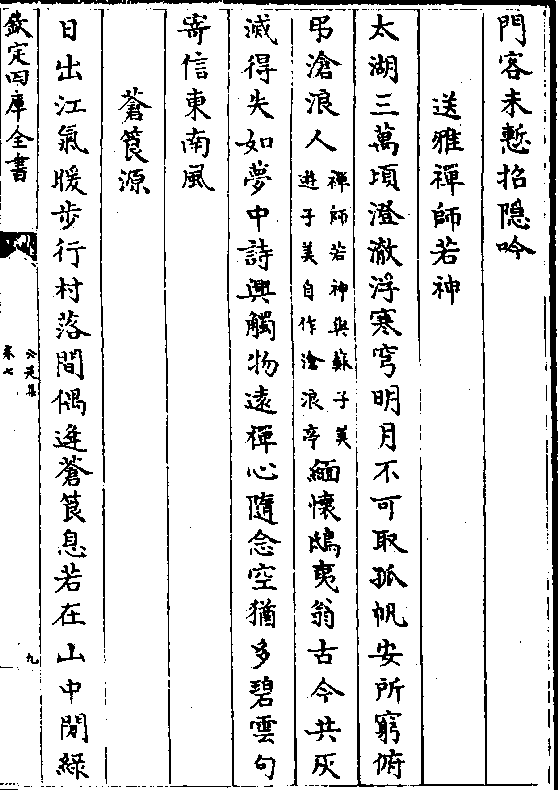 門客未慙招隠吟
送雅禪師若神
太湖三萬頃澄澈浮寒穹明月不可取孤帆安所窮俯
弔滄浪人禪師若神與蘇子美遊子美自作滄浪亭緬懷鴟夷翁古今共灰
滅得失如夢中詩興觸物遠禪心隨念空猶多碧雲句
寄信東南風
蒼筤源
日出江氣暖步行村落間偶逄蒼筤息若在山中閒緑
欽定四庫全書
公是集
卷七
九